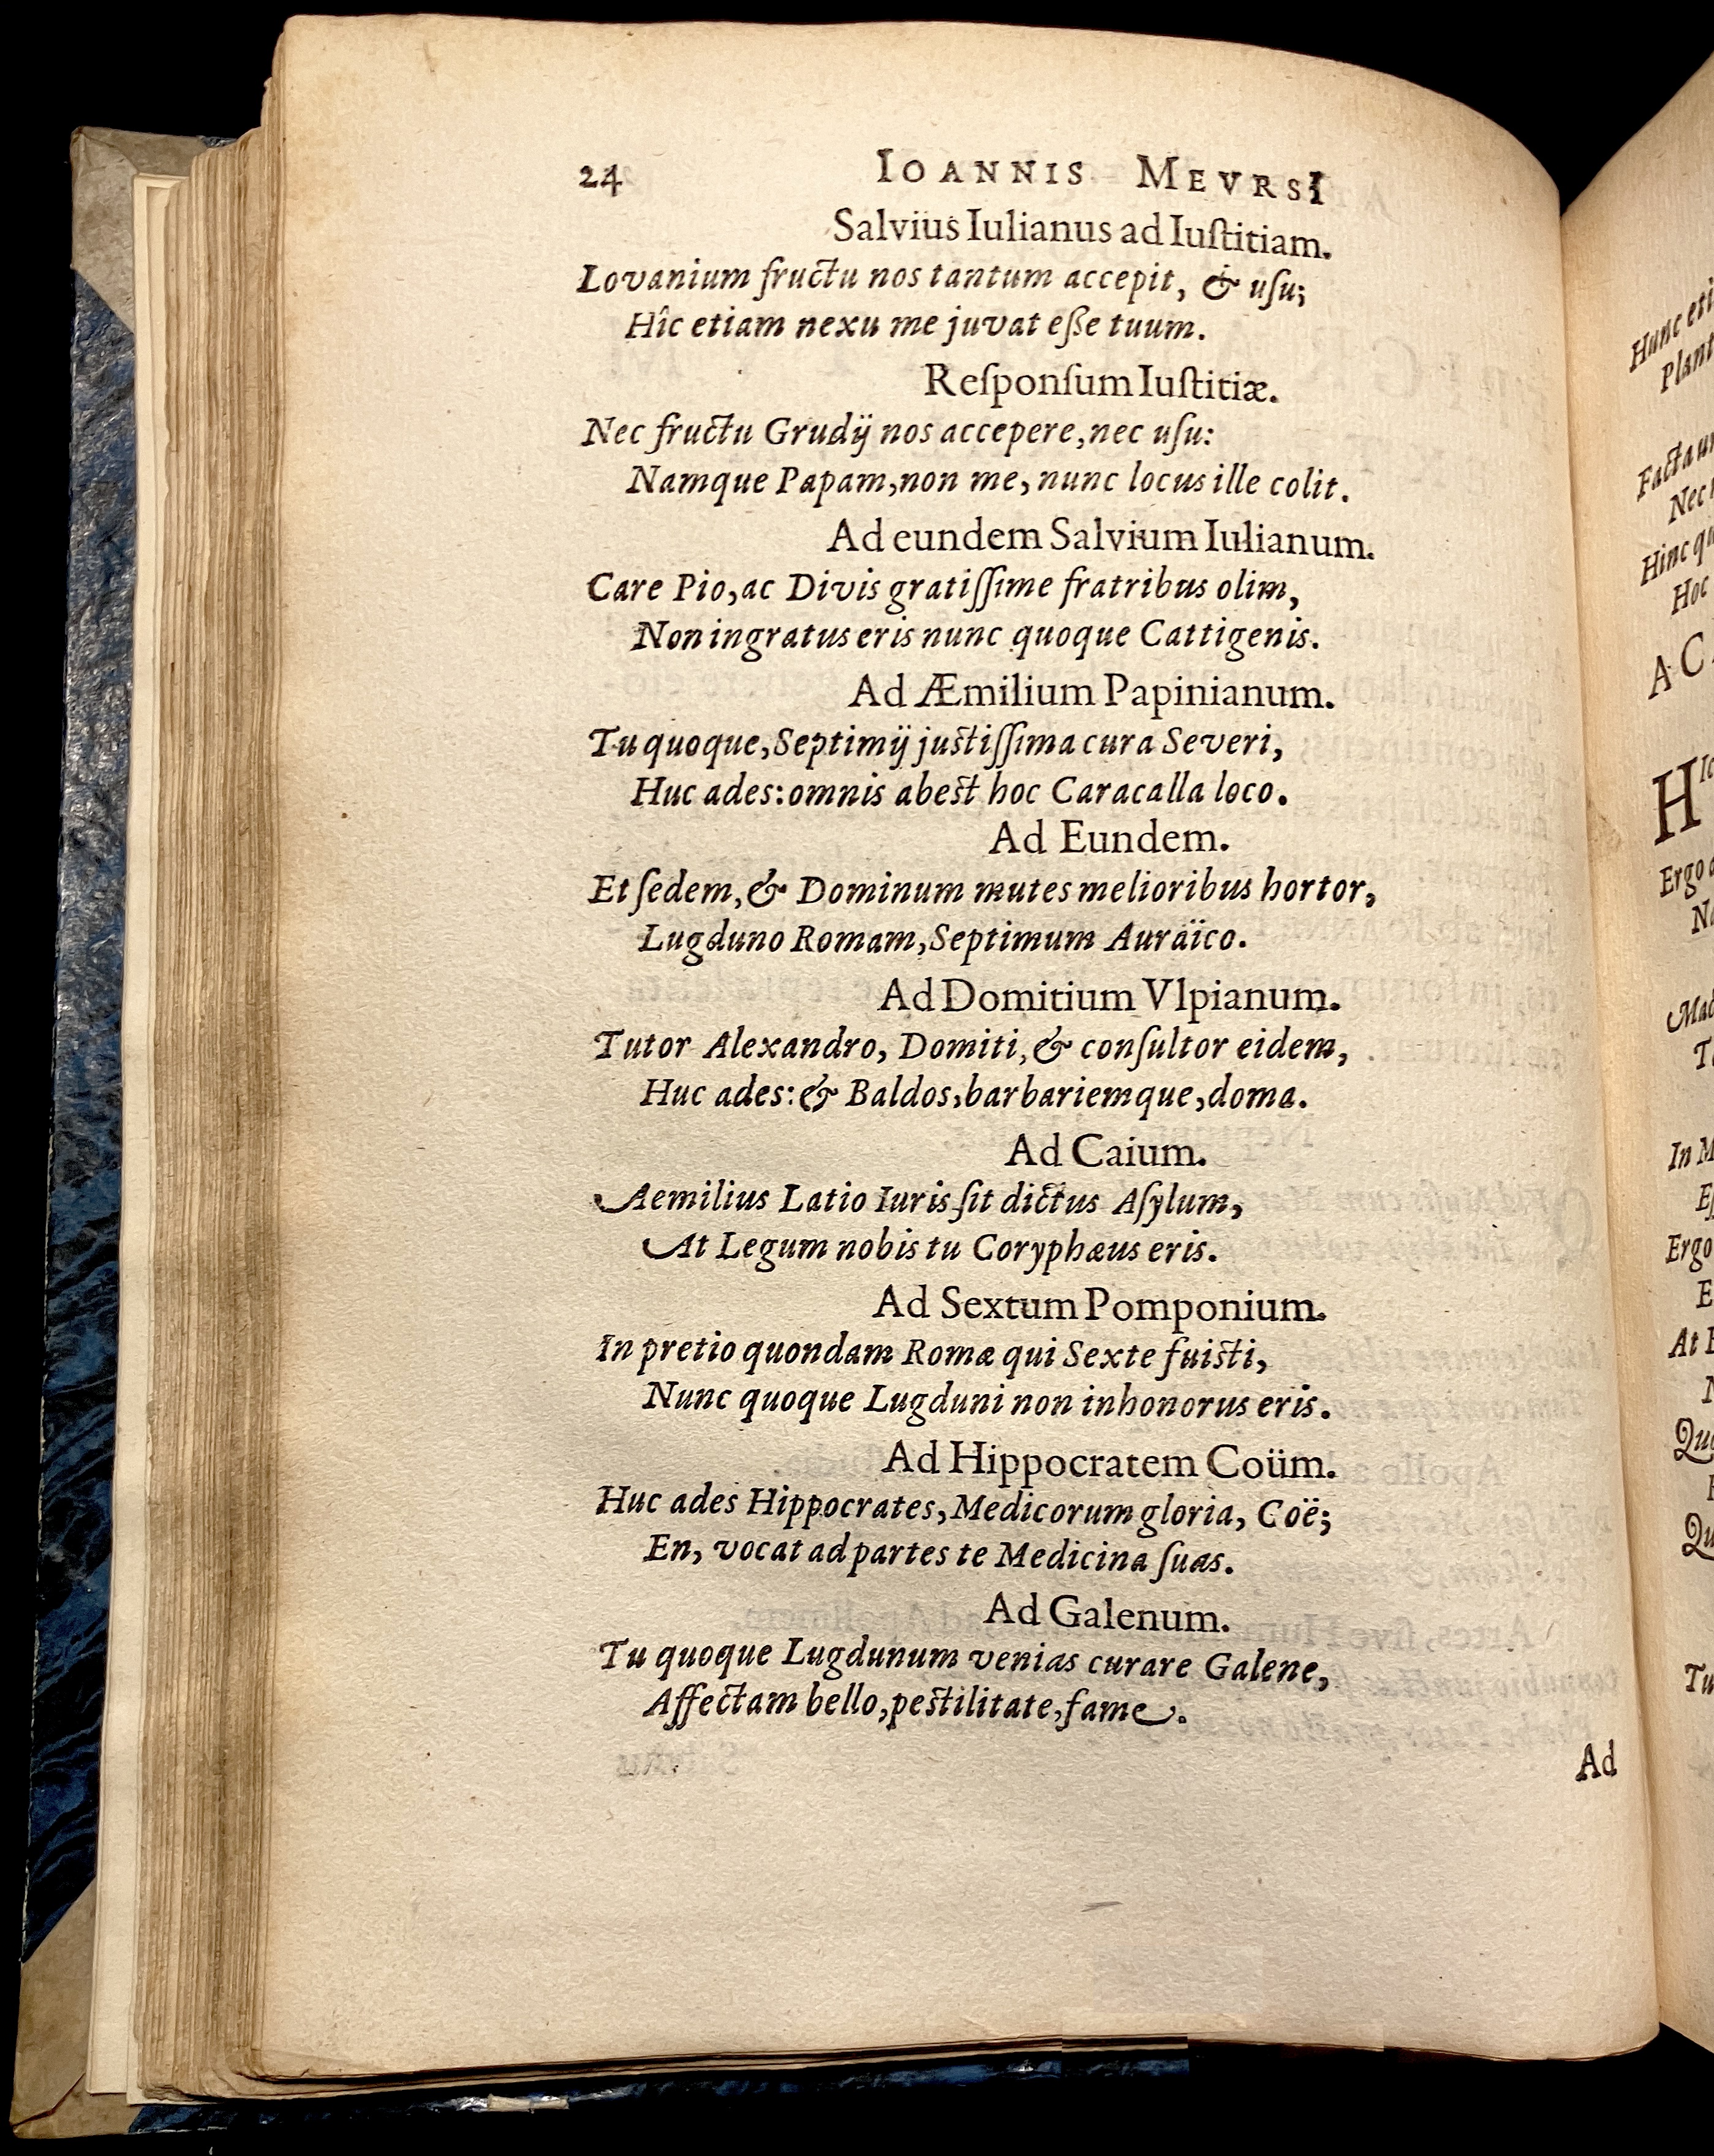 24 IOANNIS MEVRSI
Salvius Iulianus ad Iuſtitiam.
Lovanium fructu nos tantum accepit, & uſu;
Hîc etiam nexu me juvat eſſe tuum.
Reſponſum Iuſtitiæ.
Nec fructu Grudij nos accepere, nec uſu:
Namque Papam, non me, nunc locus ille colit.
Ad eundem Salvium Iulianum.
Care Pio, ac Divis gratiſſime fratribus olim,
Non ingratus eris nunc quoque Cattigenis.
Ad Æmilium Papinianum.
Tu quoque, Septimij juſtiſſima cura Severi,
Huc ades: omnis abeſt hoc Caracalla loco.
Ad Eundem.
Et ſedem, & Dominum mutes melioribus hortor,
Lugduno Romam, Septimum Auraïco.
Ad Domitium Vlpianum.
Tutor Alexandro, Domiti, & conſultor eidem,
Huc ades: & Baldos, barbariemque, doma.
Ad Caium.
Aemilius Latio Iuris ſit dictus Aſylum,
At Legum nobis tu Coryphæus eris.
Ad Sextum Pomponium.
In pretio quondam Romæ qui Sexte fuiſti,
Nunc quoque Lugduni non inhonorus eris.
Ad Hippocratem Coüm.
Huc ades Hippocrates, Medicorum gloria, Coë;
En, vocat ad partes te Medicina ſuas.
Ad Galenum.
Tu quoque Lugdunum venias curare Galene,
Affectam bello, peſtilitate, fame.
Ad
Hunc
Nec
Hinc
Hoc
Ergo
In
Ergo
At